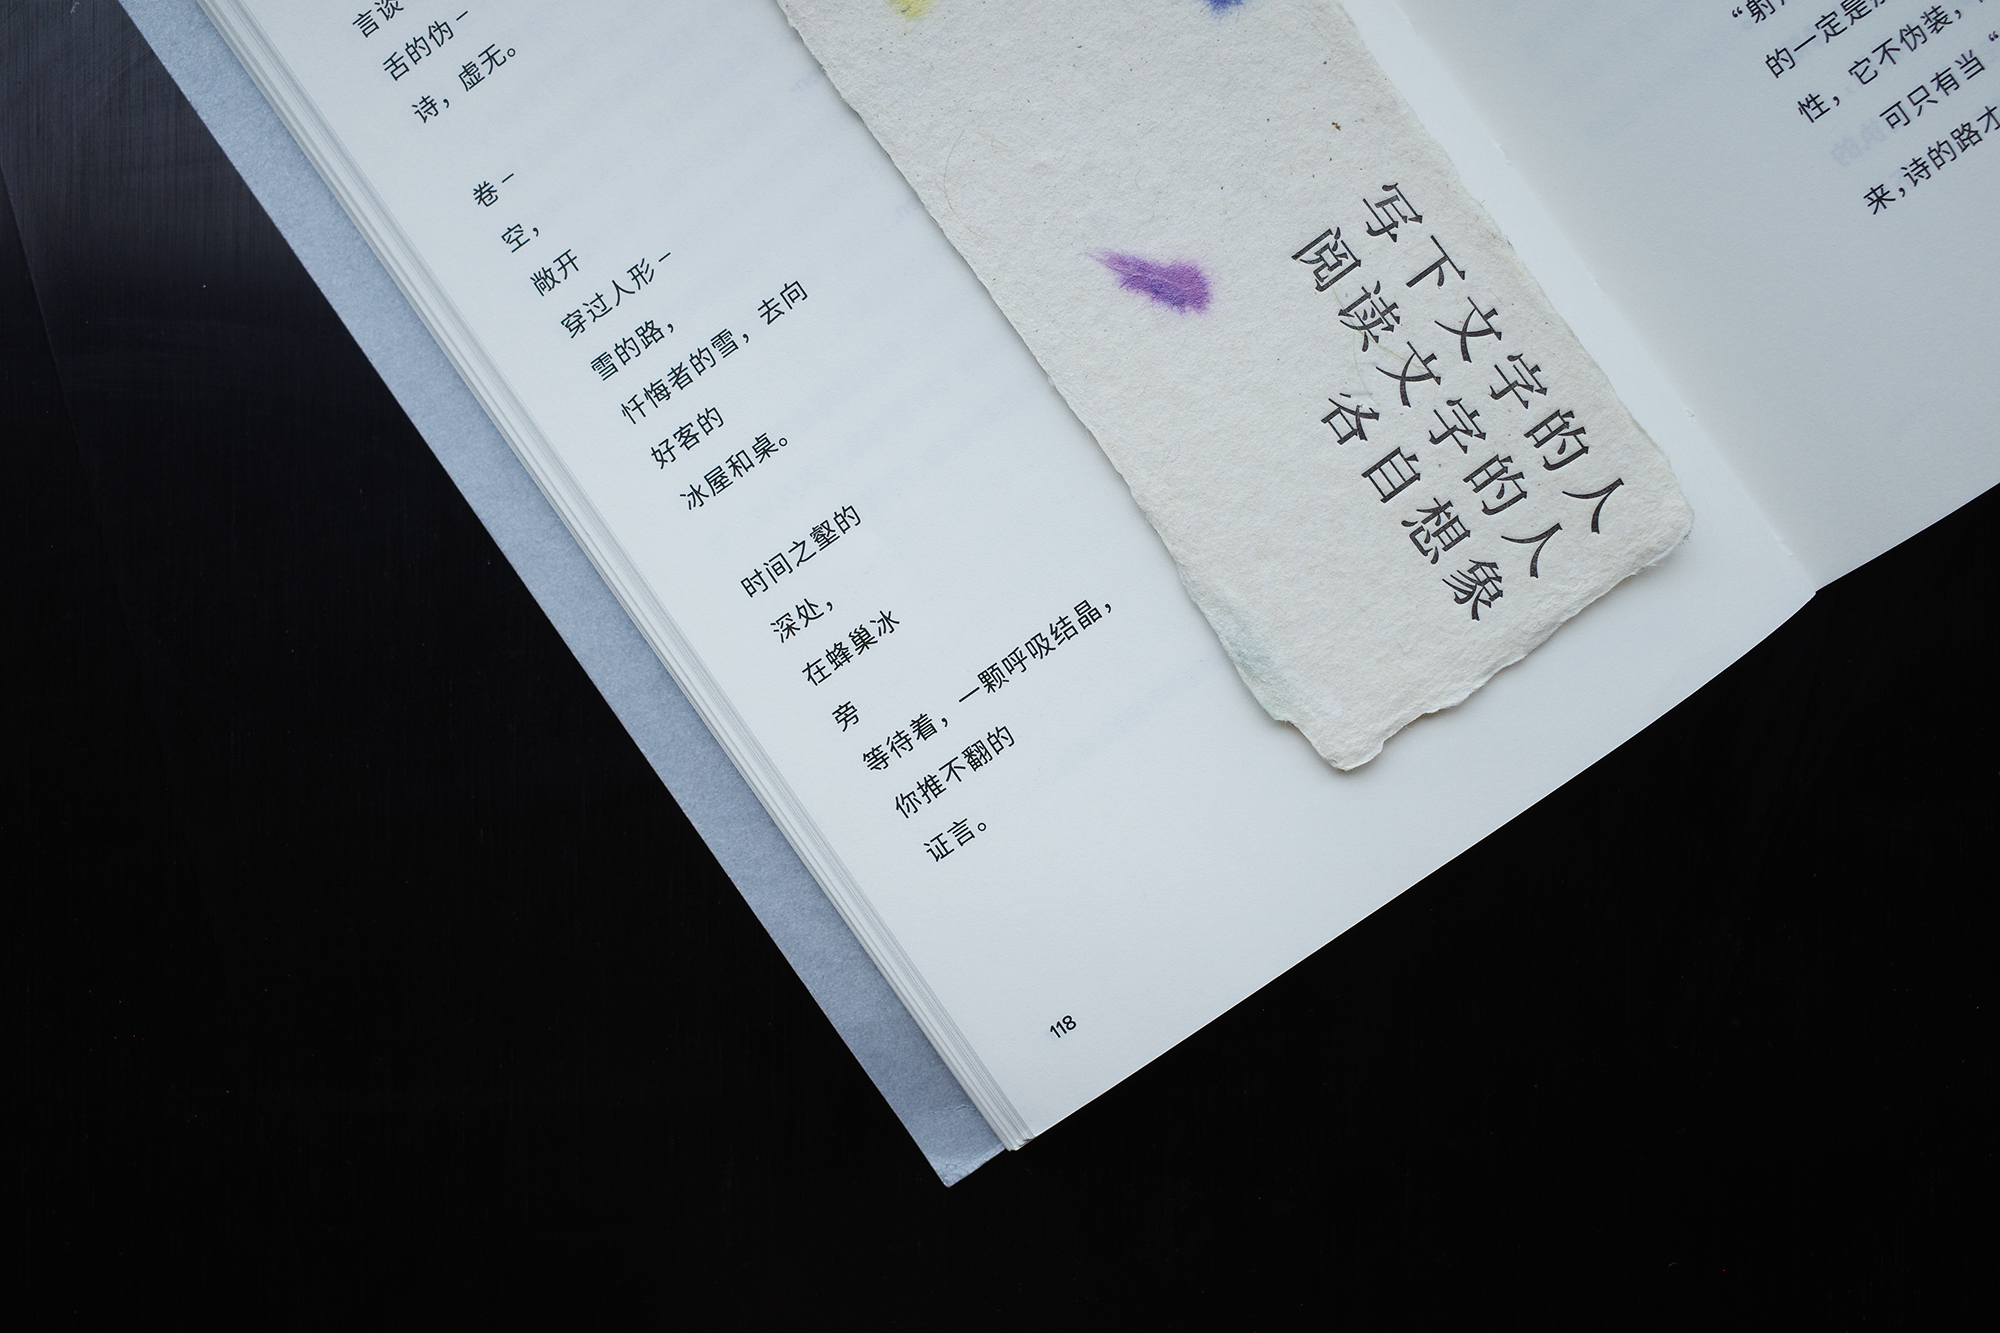 言谈
舌的伪－
诗，虚无。
卷－
空，
敞开
穿过人形－
雪的路，
忏悔者的雪，去向
好客的
冰屋和桌。
时间之壑的
深处，
在蜂巢冰
旁
等待着，一颗呼吸结晶，
你推不翻的
证言。
118
写下文字的人
阅读文字的人
各自想象
“射
的一定是
性，它不伪装，
可只有当“
来，诗的路才